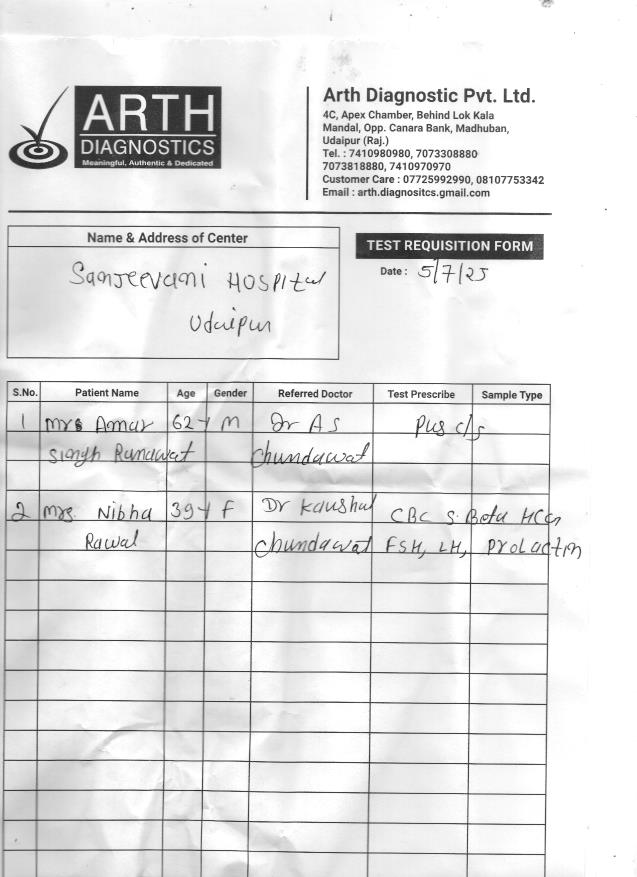 ARTH
DIAGNOSTICS
Meaningful, Authentic & Dedicated
Arth Diagnostic Pvt. Ltd.
4C, Apex Chamber, Behind Lok Kala
Mandal, Opp. Canara Bank, Madhuban,
Udaipur (Raj.)
Tel. : 7410980980, 7073308880
7073818880, 7410970970
Customer Care : 07725992990, 08107753342
Email : arth.diagnositcs.gmail.com
Name & Address of Center
Sanjeevani Hospital
Udaipur
TEST REQUISITION FORM
Date : 5/7/25
S.No. Patient Name Age Gender Referred Doctor Test Prescribe Sample Type
1 Mrs Amar 62y M Dr AS Pus c/s
Singh Ranawat Chundawat
2 Mrs. Nibha 39y F Dr Kaushal CBC S. Beta HCG
Rawal Chundawat FSH, LH, Prolactin